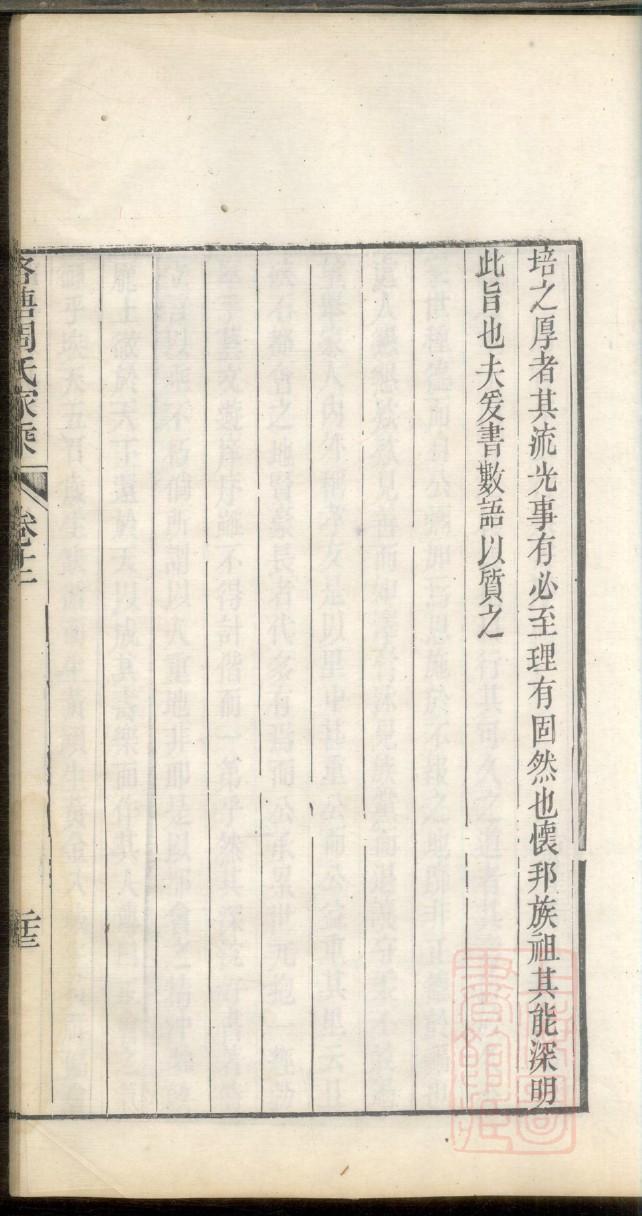 培之厚者其流光事有必至理有固然也懷邦族祖其能深明
此旨也夫爰書數語以質之
塘周氏家乘
卷十二